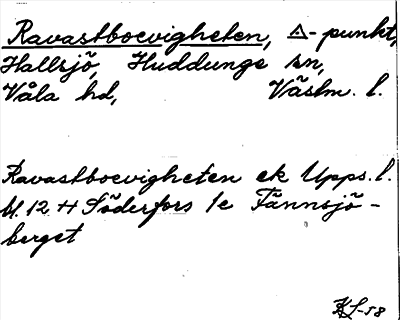 Ravastboevigheten, △-punkt,
Hallsjö, Huddunge sn,
Våla hd, Västm. l.
Ravastboevigheten ek Upps. l.
bl. 12 H Söderfors 1e Tännsjö-
berget
KL-58